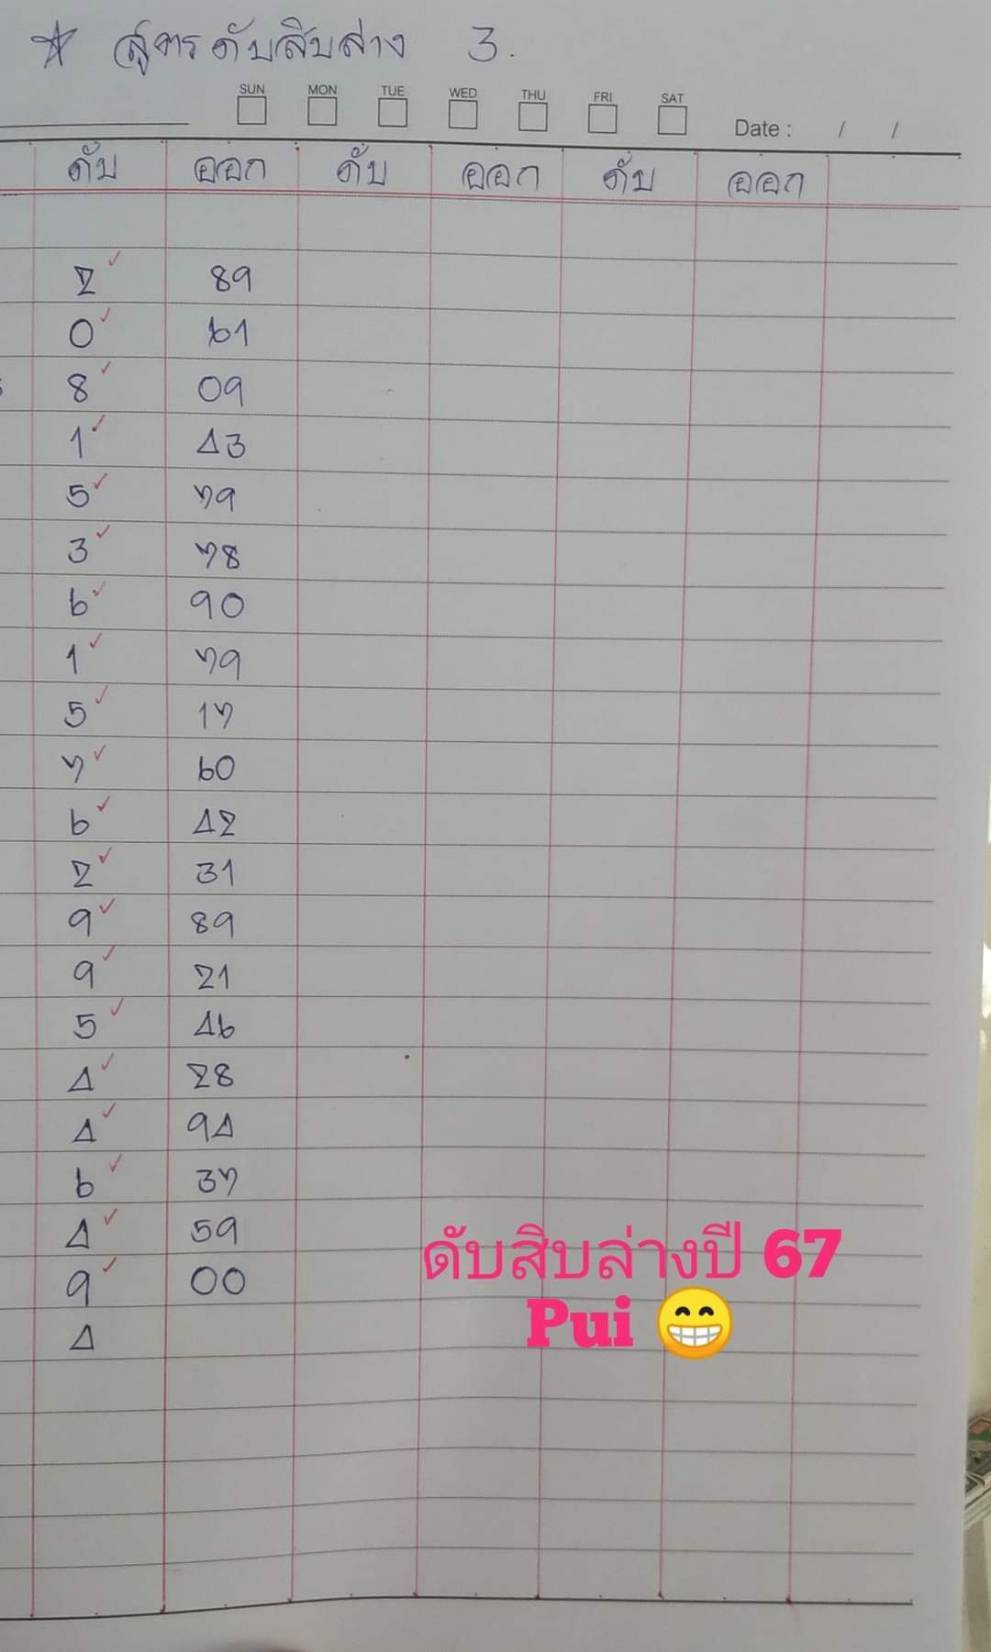 ☆ สูตรดับสิบล่าง 3.
SUN MON TUE WED THU FRI SAT
Date : / /
ดับ ออก ดับ ออก ดับ ออก
2 89
0 61
8 09
1 43
5 79
3 78
6 90
1 79
5 17
7 60
6 42
2 31
9 89
9 21
5 46
4 28
4 94
6 37
4 59
9 00
4
ดับสิบล่างปี 67
Pui 😁